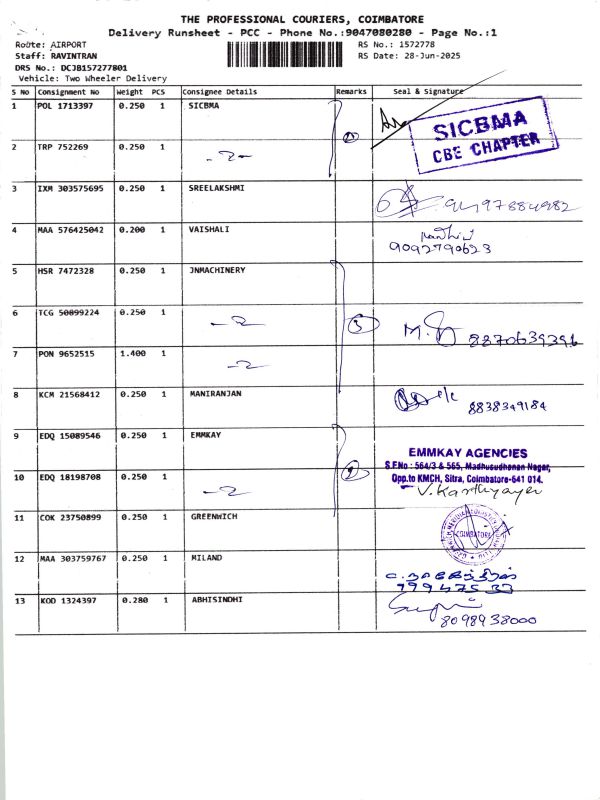 THE PROFESSIONAL COURIERS, COIMBATORE
Delivery Runsheet - PCC - Phone No.:9047080280 - Page No.:1
Route: AIRPORT RS No.: 1572778
Staff: RAVINTRAN RS Date: 28-Jun-2025
DRS No.: DCJB157277801
Vehicle: Two Wheeler Delivery
S No Consignment No Weight PCS Consignee Details Remarks Seal & Signature
1 POL 1713397 0.250 1 SICBMA
SICBMA
CBE CHAPTER
2 TRP 752269 0.250 1 -2-
3 IXM 303575695 0.250 1 SREELAKSHMI
9497884982
4 MAA 576425042 0.200 1 VAISHALI
9092790623
5 HSR 7472328 0.250 1 JNMACHINERY
6 TCG 50899224 0.250 1 -2- 3 M. 8870639396
7 PON 9652515 1.400 1 -2-
8 KCM 21568412 0.250 1 MANIRANJAN
8838349184
9 EDQ 15089546 0.250 1 EMMKAY
EMMKAY AGENCIES
S.F.No : 564/3 & 565, Madhusudhanan Nagar,
Opp.to KMCH, Sitra, Coimbatore-641 014.
10 EDQ 18198708 0.250 1 -2- V. Karthyayei
11 COK 23750899 0.250 1 GREENWICH
COIMBATORE
12 MAA 303759767 0.250 1 MILAND
13 KOD 1324397 0.280 1 ABHISINDHI
8098938000